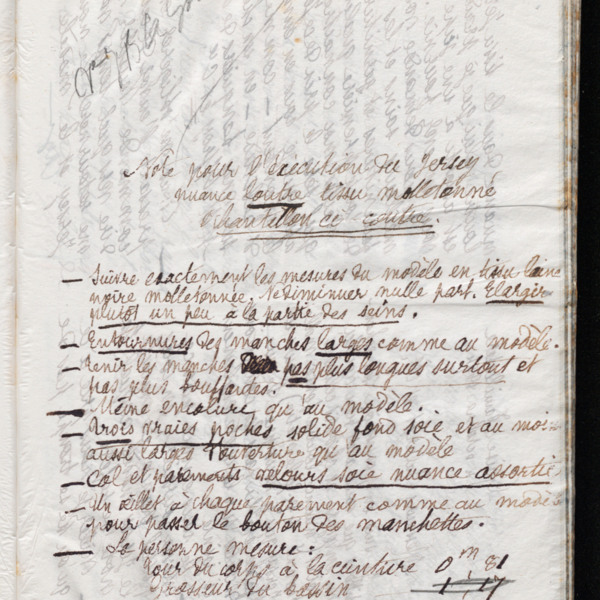 Note pour l'éxécution du Jersey
nuance loutre tissu molletonné
Echantillon ci cousu.
— Suivre exactement les mesures du modèle en tissu laine
noire molletonnée. Ne diminuer nulle part. Elargir
plutôt un peu à la partie des seins.
— Entournures des manches larges comme au modèle.
— Tenir les manches pas plus longues surtout et
pas plus bouffantes.
— Même encolure qu'au modèle.
— Trois vraies poches solide fond soie et au moins
aussi larges d'ouverture qu'au modèle
— Col et parements velours soie nuance assortie
— Un œillet à chaque parement comme au modèle
pour passer le bouton des manchettes.
— La personne mesure :
Tour du corps à la ceinture 0 m 81
Grosseur du bassin 1 17